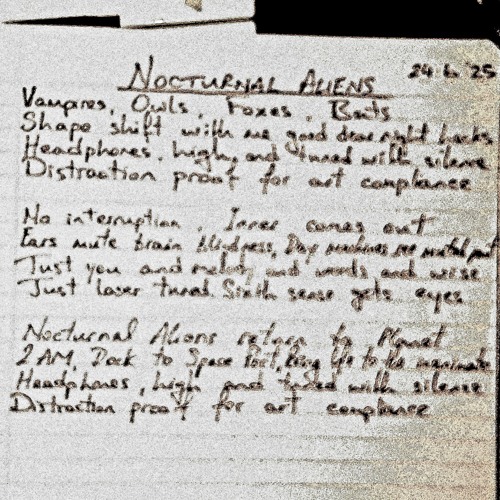 NOCTURNAL ALIENS
24.6.'25
Vampires, Owls, Foxes, Bats
Shape shift with me good dear night
Headphones, high, and tuned with silence
Distraction proof for art compliance
No interruption, Inner comes out
Ears mute brain blindness, Day machines
Just you and melody and words and
Just laser tuned. Sixth sense gets eyes
Nocturnal Aliens return to Planet
2 AM, Dock to Space Port, Bring life to the inanimate
Headphones, high and tuned with silence
Distraction proof for art compliance